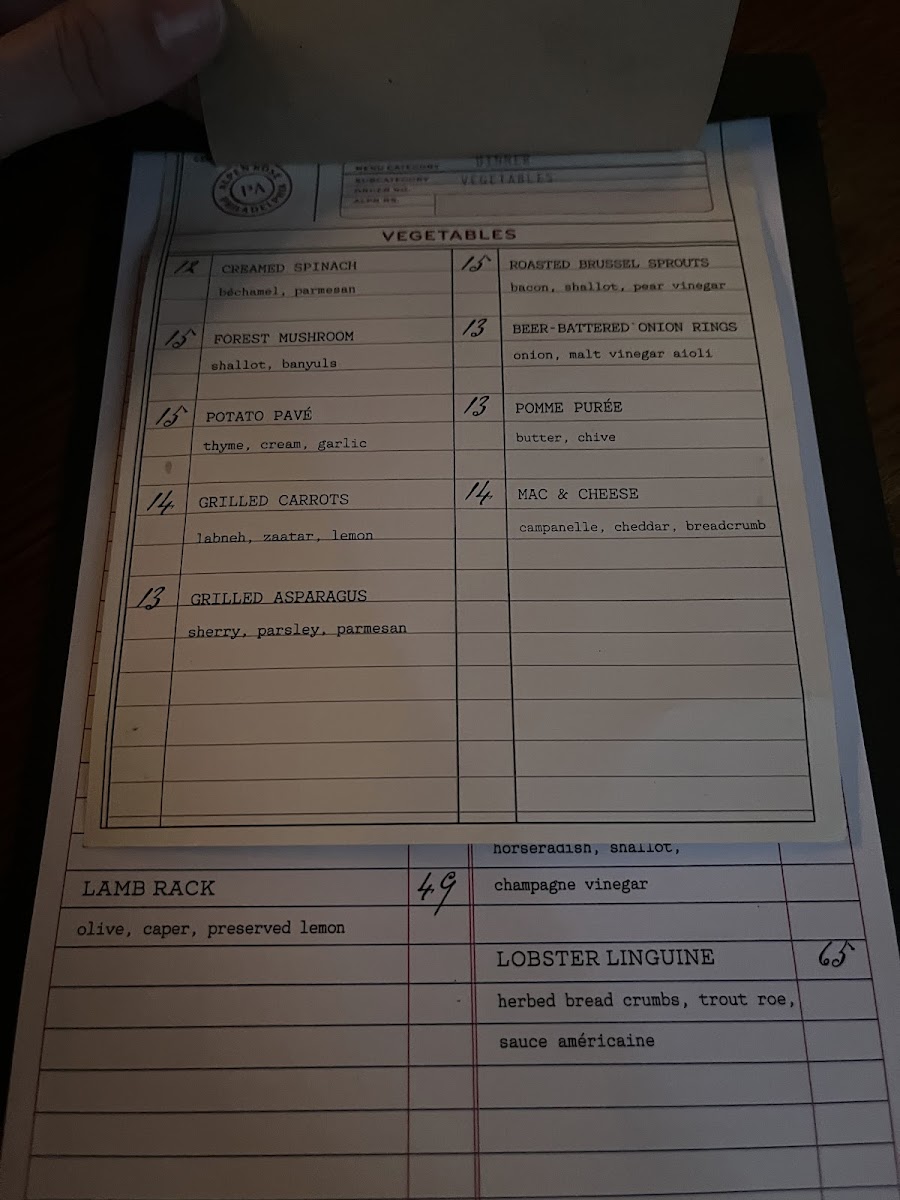 ALPEN ROSE
PA
PHILADELPHIA
MENU CATEGORY DINNER
SUBCATEGORY VEGETABLES
ORDER NO.
ALPN RS.
VEGETABLES
CREAMED SPINACH
béchamel, parmesan
15 FOREST MUSHROOM
shallot, banyuls
15 POTATO PAVÉ
thyme, cream, garlic
14 GRILLED CARROTS
labneh, zaatar, lemon
13 GRILLED ASPARAGUS
sherry, parsley, parmesan
15 ROASTED BRUSSEL SPROUTS
bacon, shallot, pear vinegar
13 BEER-BATTERED ONION RINGS
onion, malt vinegar aioli
13 POMME PURÉE
butter, chive
14 MAC & CHEESE
campanelle, cheddar, breadcrumb
LAMB RACK 49
olive, caper, preserved lemon
horseradish, shallot,
champagne vinegar
LOBSTER LINGUINE 65
herbed bread crumbs, trout roe,
sauce américaine